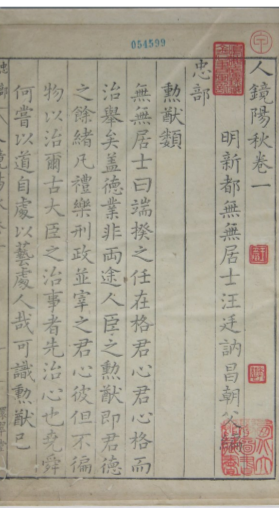 054599
人鏡陽秋卷一
明新都無無居士汪廷訥昌朝父
忠部
勲猷類
無無居士曰端揆之任在格君心君心格而
治舉矣盖德業非兩途人臣之勲猷即君德
之餘緒凡禮樂刑政並宰之君心彼但不徧
物以治爾古大臣之治事者先治心也堯舜
何嘗以道自處以藝處人哉可識勲猷已